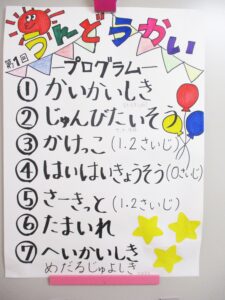 うんどうかい
第1回
ープログラムー
① かいかいしき
② じゅんびたいそう
③ かけっこ (1.2さいじ)
④ はいはいきょうそう (0さいじ)
⑤ さーきっと (1.2さいじ)
⑥ たまいれ
⑦ へいかいしき
めだるじゅよしき